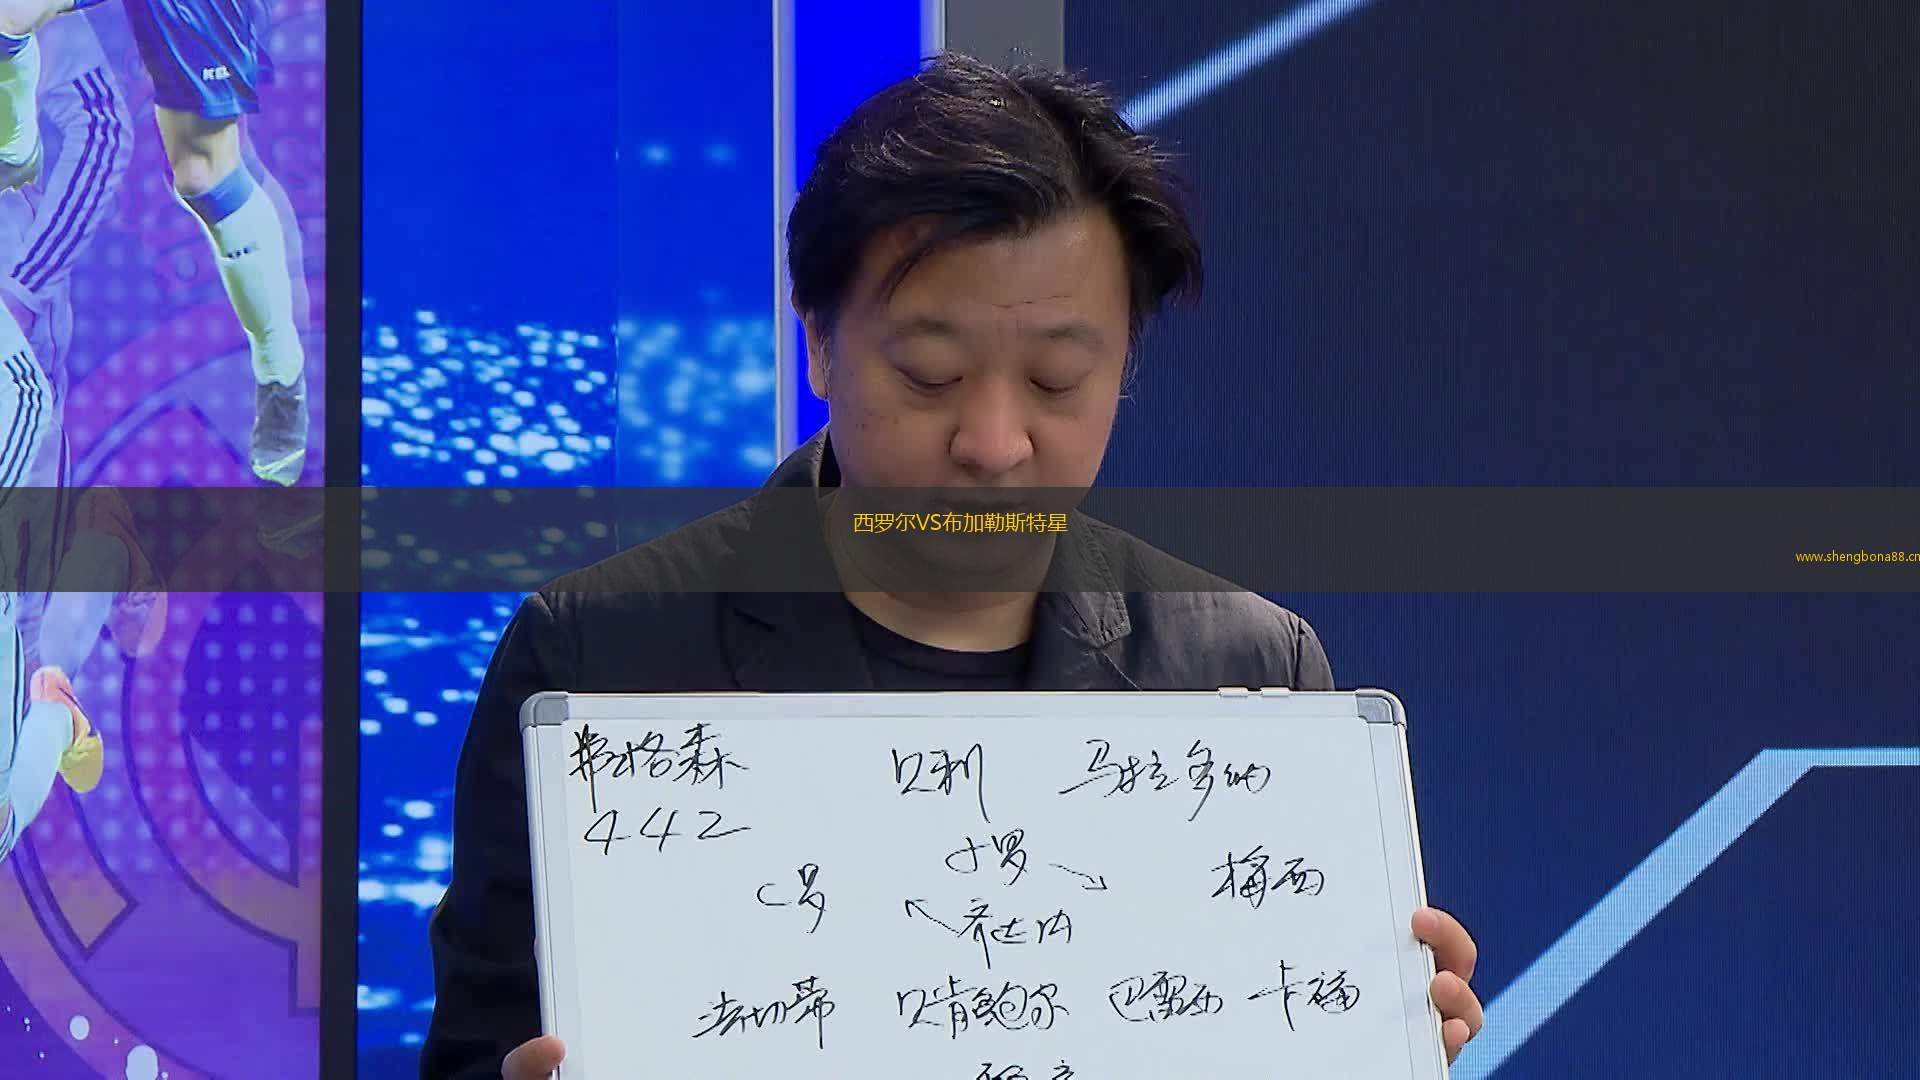 KEL
西罗尔VS布加勒斯特星
www.shengbona88.cn
弗格森 贝利 马拉多纳
442
小罗
C罗 梅西
齐达内
法切蒂 贝肯鲍尔 巴雷西 卡福